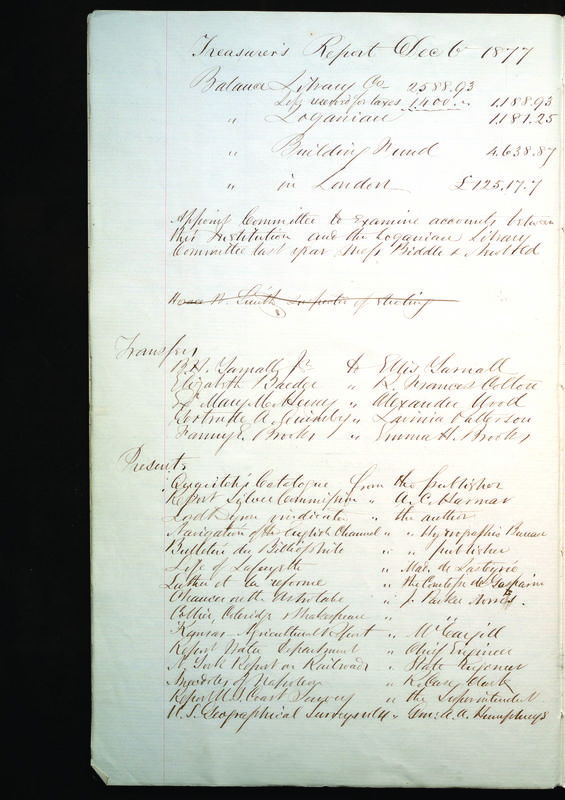 Treasurer's Report Dec 6 1877
Balance Library Co 2588.93
Less reserved for taxes 1400.„ 1.188.93
„ Loganian 1181.25
„ Building Fund 4.638.87
„ in London £125.17.7
Appoint Committee to examine accounts between
this Institution and the Loganian Library
Committee last year Messrs Biddle &
Horace W. Smith Inspector of Election
Transfers
B. H. Yarnall Jr to Ellis Yarnall
Elizabeth „ R. Frances Cotton
Mary M. „ Alexander Wood
Gertrude A. „ Patterson
Fanny E. Brooks „ Emma H. Brooks
Presents
Quaritch's Catalogue from the publisher
Report Silver Commission „ A. C. Harmar
Lord Byron vindicated „ the author
Navigation of the English Channel „ „ Hydrographic Bureau
Bulletin du Bibliophile „ „ publisher
Life of Lafayette „ Mad. de Lasteyrie
Luther et la reforme „ the Comtesse de Gasparin
Chaucer on the Astrolabe „ J. Parker Norris.
Collier, Coleridge & Shakespeare „ „
Kansas Agricultural Report „ Mr Cargill
Report Water Department „ Chief Engineer
N. York Report on Railroads „ State Engineer
Anecdotes of Napoleon „ R. Clark
Report U.S. Coast Survey „ the Superintendent
U.S. Geographical Surveys vol 4 „ Gen: A. A. Humphreys